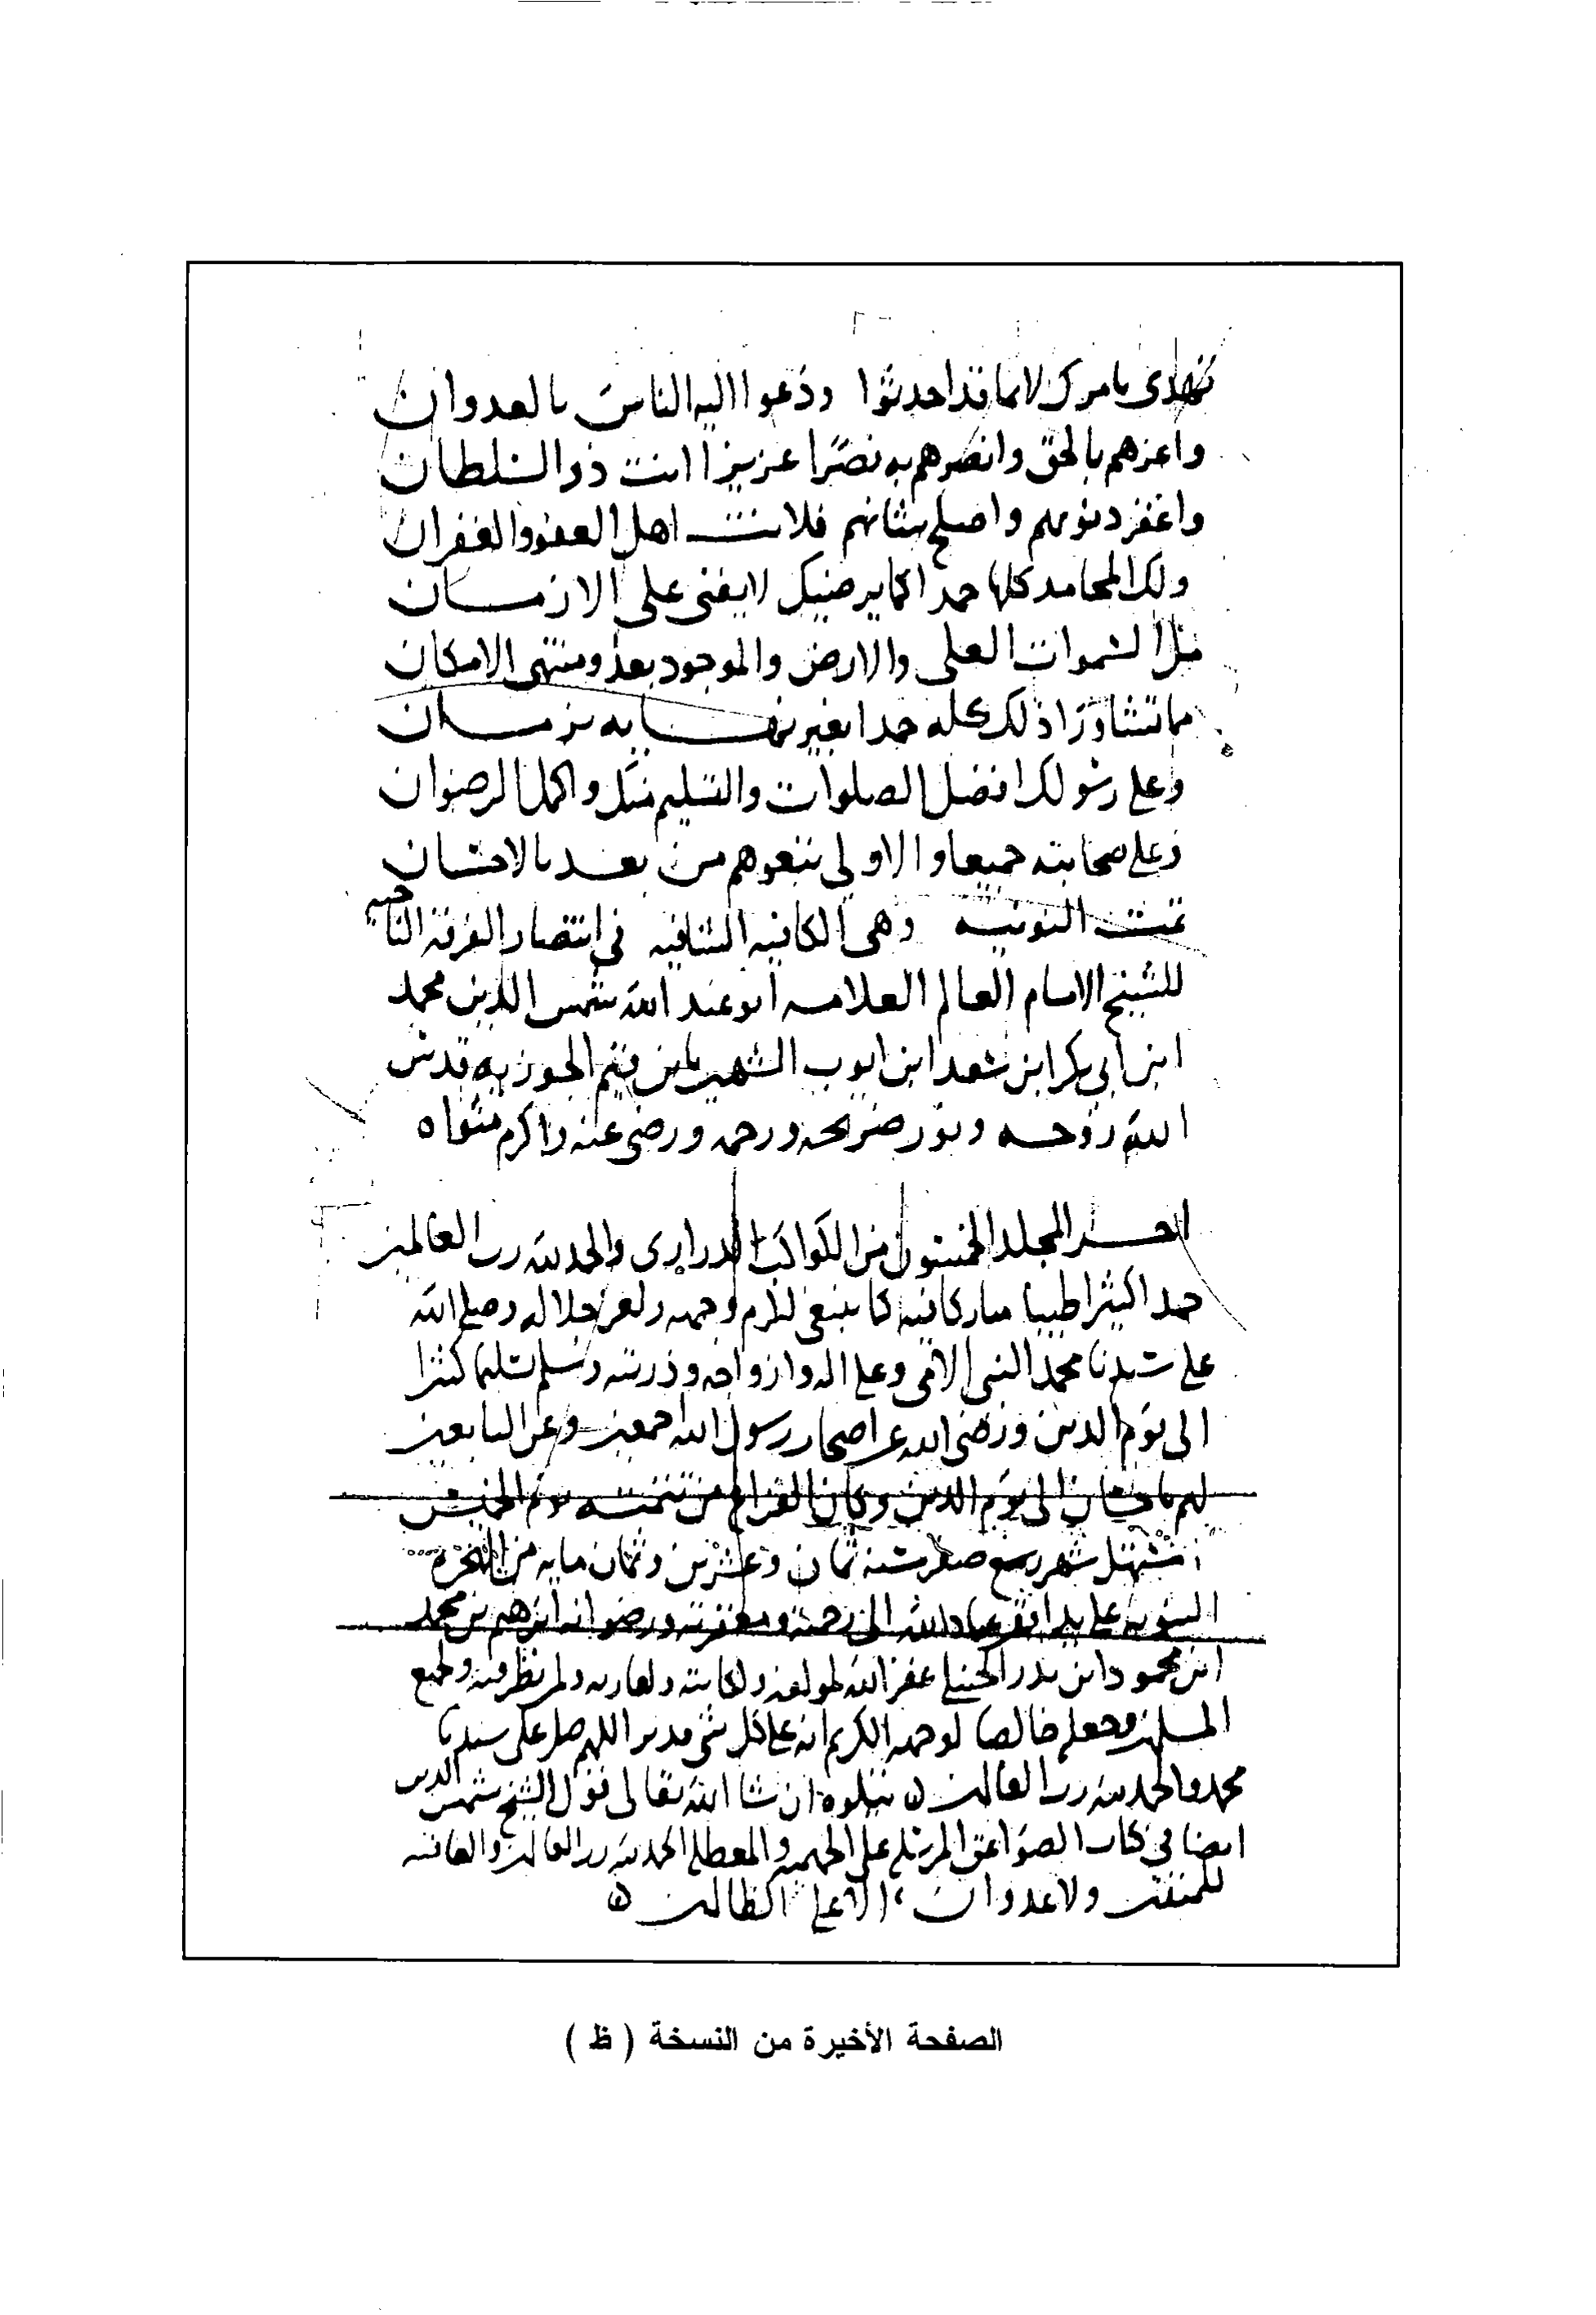 تهدى بامرك لا بما قد احدثوا ودعوا اليه الناس بالعدوان
واعزهم بالحق وانصرهم به نصرا عزيزا انت ذو السلطان
واغفر ذنوبهم واصلح شانهم فلانت اهل العفو والغفران
ولك المحامد كلها حمدا كما يرضيك لا يفنى على الازمان
ملا السموات العلى والارض والموجود بعد ومنتهى الامكان
مما تشا ورا ذلك كله حمدا بغير نهاية بزمان
وعلى رسولك افضل الصلوات والتسليم منك واكمل الرضوان
وعلى صحابته جميعا والاولى تبعوهم من بعد بالاحسان
تمت النونية وهى الكافيه الشافيه فى انتصار الفرقه الناجيه
للشيخ الامام العالم العلامه ابو عبد الله شمس الدين محمد
ابن ابي بكر ابن سعد ابن ايوب الشهير بابن قيم الجوزيه قدس
الله روحه ونور ضريحه ورحمه ورضى عنه واكرم مثواه
اخر المجلد الخمسون من الكواكب الدرارى والحمد لله رب العالمين
حمدا كثيرا طيبا مباركا فيه كما ينبغى لكرم وجهه ولعز جلاله وصلى الله
على سيدنا محمد النبى الامى وعلى اله وازواجه وذريته وسلم تسليما كثيرا
الى يوم الدين ورضى الله عن اصحاب رسول الله اجمعين وعن التابعين
لهم باحسان الى يوم الدين وكان الفراغ من تتمته يوم الخميس
مستهل شهر صفر سنه ثمان وعشرين وثمان مايه من الهجره
النبويه على يد افقر عباد الله الى رحمته ومغفرته ورضوانه ابرهيم بن محمد
ابن محمود ابن بدر الحنبلى غفر الله لمولفه ولكاتبه ولقاريه ولمن نظر فيه ولجميع
المسلمين وجعله خالصا لوجهه الكريم انه على كل شى قدير اللهم صل على سيدنا
محمد والحمد لله رب العالمين ه يتلوه ان شا الله تعالى قول الشيخ شمس الدين
ايضا في كتاب الصواعق المرسله على الجهميه والمعطله الحمد لله رب العالمين والعاقبه
للمتقين ولا عدوان الا على الظالمين ه
الصفحة الأخيرة من النسخة ( ظ )